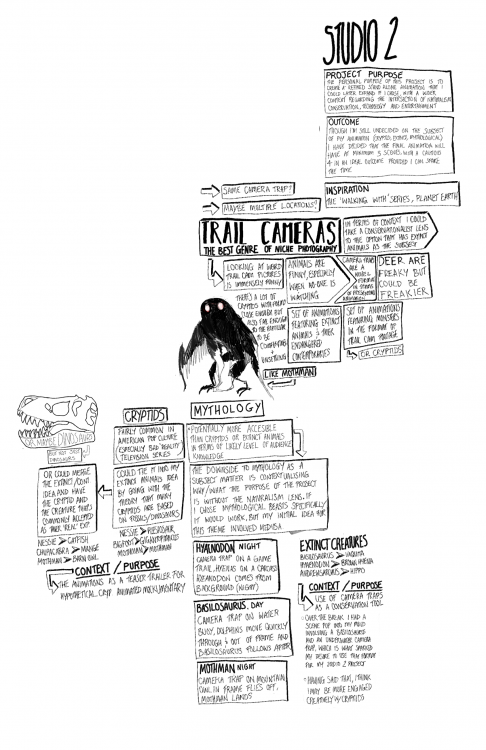 STUDIO 2
PROJECT PURPOSE
THE PERSONAL PURPOSE OF THIS PROJECT IS TO
CREATE A REFINED STAND ALONE ANIMATION THAT I
COULD LATER EXPAND IF I CHOSE, WITH A WIDER
CONTEXT REGARDING THE INTERSECTION OF NATURALISM,
CONSERVATION, TECHNOLOGY AND ENTERTAINMENT
OUTCOME
THOUGH I'M STILL UNDECIDED ON THE SUBJECT
OF MY ANIMATION (CRYPTID, EXTINCT, MYTHOLOGICAL)
I HAVE DECIDED THAT THE FINAL ANIMATION WILL
HAVE AT MAXIMUM 5 SCENES, WITH A CAUTIOUS
4 IN AN IDEAL OUTCOME PROVIDED I CAN SPARE
THE TIME
INSPIRATION
THE 'WALKING WITH' SERIES, PLANET EARTH
SAME CAMERA TRAP?
MAYBE MULTIPLE LOCATIONS?
TRAIL CAMERAS
THE BEST GENRE OF NICHE PHOTOGRAPHY
IN TERMS OF CONTEXT I COULD
TAKE A CONSERVATIONALIST LENS
TO THE OPTION THAT HAS EXTINCT
ANIMALS AS THE SUBJECT
LOOKING AT WEIRD
TRAIL CAM PICTURES
IS IMMENSELY FUNNY
ANIMALS ARE
FUNNY, ESPECIALLY
WHEN NO-ONE IS
WATCHING
CAMERA TRAPS
ARE A
FORMAT IN
TERMS OF
DEER ARE
FREAKY BUT
COULD BE
FREAKIER
THERE'S A LOT OF
CRYPTIDS WITH
CLOSE ENOUGH BUT
ALSO FAR ENOUGH
TO THE FAMILIAR
TO BE
COMPELLING
+
UNSETTLING
SET OF ANIMATIONS
FEATURING EXTINCT
ANIMALS + THEIR
ENDANGERED
CONTEMPORARIES
SET OF ANIMATIONS
FEATURING MONSTERS
IN THE FORMAT OF
TRAIL CAM FOOTAGE
OR CRYPTIDS
LIKE MOTHMAN
OR MAYBE DINOSAURS
BUT NOT JUST
DINOSAURS
CRYPTIDS
FAIRLY COMMON IN
AMERICAN POP CULTURE
(ESPECIALLY BAD 'REALITY'
TELEVISION SERIES)
MYTHOLOGY
POTENTIALLY MORE ACCESIBLE
THAN CRYPTIDS OR EXTINCT ANIMALS
IN TERMS OF LIKELY LEVEL OF AUDIENCE
KNOWLEDGE
THE DOWNSIDE TO MYTHOLOGY AS A
SUBJECT MATTER IS CONTEXTUALISING
WHY/WHAT THE PURPOSE OF THE PROJECT
IS WITHOUT THE NATURALISM LENS. IF
I CHOSE MYTHOLOGICAL BEASTS SPECIFICALLY
IT WOULD WORK, BUT MY INITIAL IDEA FOR
THIS THEME INVOLVED MEDUSA
OR COULD MERGE
THE EXTINCT/CONT
IDEA AND HAVE
THE CRYPTID AND
THE CREATURE THAT'S
COMMONLY ACCEPTED
AS THEIR 'REAL' EXP.
NESSIE > CATFISH
CHUPACABRA > MANGE
MOTHMAN > BARN OWL
COULD TIE IT INTO MY
EXTINCT ANIMALS IDEA
BY GOING WITH THE
THEORY THAT MANY
CRYPTIDS ARE BASED
ON FOSSILS/DINOSAURS
NESSIE > PLESIOSAUR
BIGFOOT > GIGANTOPITHECUS
MOTHMAN > MOTHMAN
CONTEXT / PURPOSE
THE ANIMATIONS AS A TEASER TRAILER FOR
HYPOTHETICAL, CRYP. ANIMATED MOCKUMENTARY
HYALNODON NIGHT
CAMERA TRAP ON A GAME
TRAIL, HYENAS ON A CARCASS
HYAENODON COMES FROM
BACKGROUND (NIGHT)
BASILOSAURUS, DAY
CAMERA TRAP ON WATER
BUOY, DOLPHINS MOVE QUICKLY
THROUGH + OUT OF FRAME AND
BASILOSAURUS FOLLOWS AFTER
MOTHMAN NIGHT
CAMERA TRAP ON MOUNTAIN
OWL IN FRAME FLIES OFF,
MOTHMAN LANDS
EXTINCT CREATURES
BASILOSAURUS > VAQUITA
HYAENODON > BROWN HYAENA
ANDREWSARCHUS > HIPPO
CONTEXT / PURPOSE
USE OF CAMERA TRAPS
AS A CONSERVATION TOOL
OVER THE BREAK I HAD A
SCENE POP INTO MY MIND
INVOLVING A BASILOSAURUS
AND AN UNDERWATER CAMERA
TRAP, WHICH IS WHAT SPARKED
MY DESIRE TO USE THIS FORMAT
FOR MY STUDIO 2 PROJECT
HAVING SAID THAT, I THINK
I MAY BE MORE ENGAGED
CREATIVELY W/ CRYPTIDS